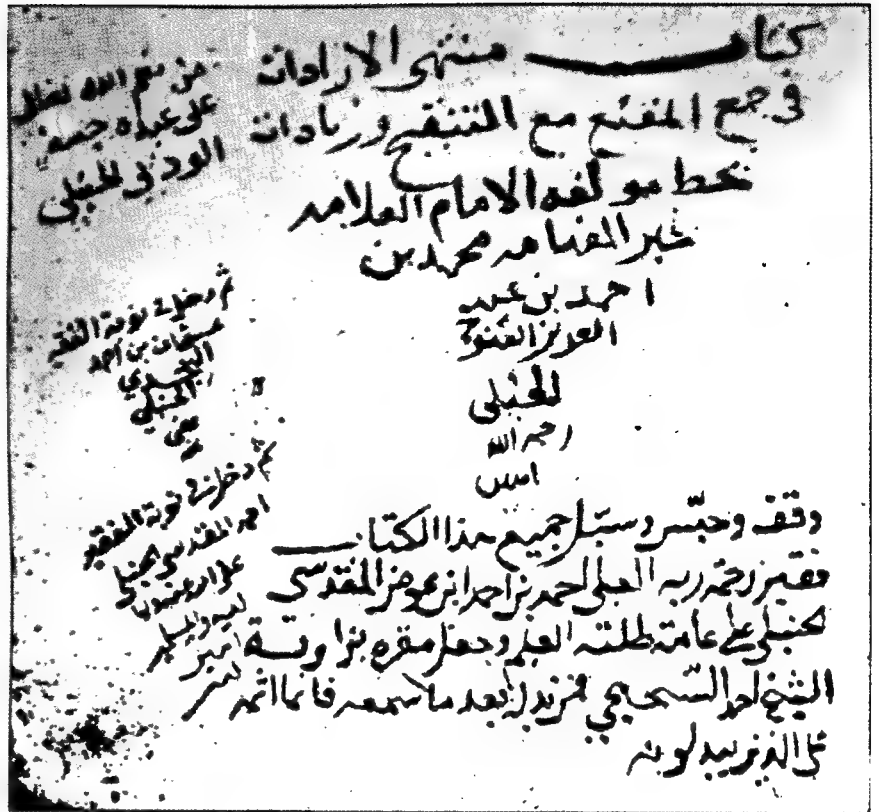 كتاب منتهى الارادات
في جمع المقنع مع التنقيح وزيادات
بخط مولفه الامام العلامه
محمد بن
احمد بن عبد
العزيز الفتوحي
الحنبلي
رحمه الله
امين
من نعم الله تعالى
على عبده
الحنبلي
ثم دخل في نوبة الفقير
عثمان بن احمد
النجدي
الحنبلي
عفي
ثم دخل في نوبة الفقير
احمد المقدسي الحنبلي
وقف وحبس وسبل جميع هذا الكتاب
فقير رحمة ربه العلي احمد بن احمد ابن عوض المقدسي
الحنبلي على عامة طلبة العلم وجعل مقره
الشيخ احمد فمن بدله بعد ما سمعه فانما اثمه
على الذين يبدلونه